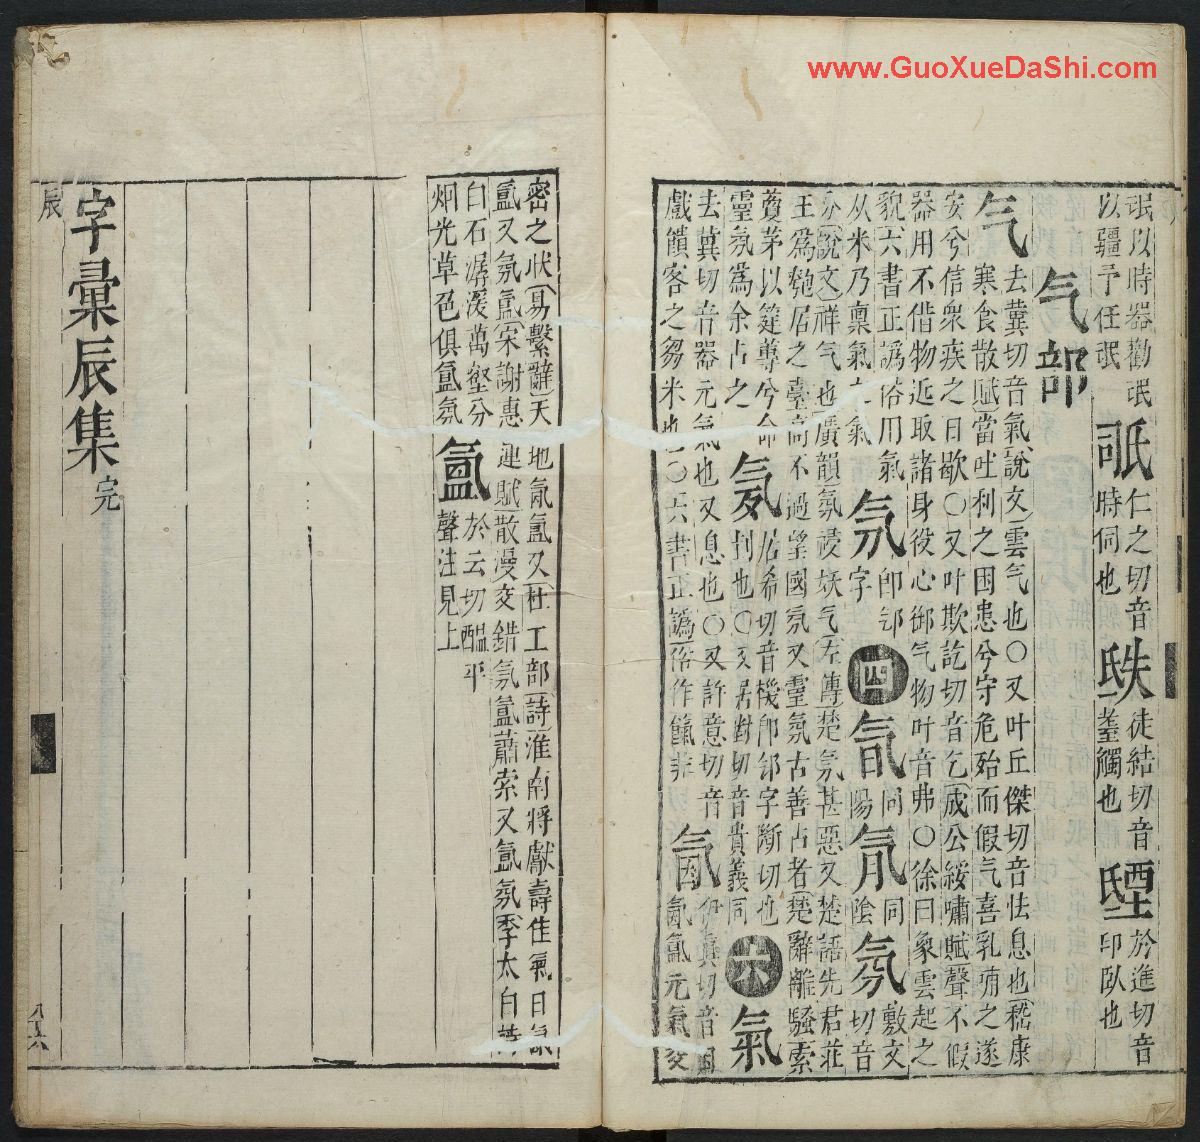 www.GuoXueDaShi.com
氓以時器勸氓
以疆予任氓
䟗仁之切音
時伺也
徒結切音
耋觸也
於進切音
印臥也
气部
气
去冀切音氣說文雲气也〇又叶丘傑切音怯息也嵇康
寒食散賦當吐利之困患兮守危殆而假气喜乳哺之遂
安兮信衆疾之日歇〇又叶欺訖切音乞成公綏嘯賦聲不假
器用不借物近取諸身役心御气物叶音弗〇徐曰象雲起之
貌六書正譌俗用氣
从米乃稟氣之氣
氖
即卻
字
四
㫐同
陽
𣱛同
陰
氛敷文
切音
分說文祥气也廣韻氛祲妖气左傳楚氛甚惡又楚語先君莊
王爲匏居之臺高不過望國氛又靈氛古善占者楚辭離騷索
藑茅以筳篿兮命
靈氛爲余占之
居希切音機卽卻字斷切也
刲也〇又居對切音貴義同
六
氣
去冀切音器元氣也又息也〇又許意切音
戲饋客之芻米也〇六書正譌俗作餼非
氤
伊真切音因
氤氳元氣交
密之狀易繫辭天地氤氳又杜工部詩淮南將獻壽佳氣日氤
氳又氛氳宋謝惠連賦散漫交錯氛氳蕭索又氳氛李太白詩
白石潺湲萬壑分
烟光草色俱氳氛
氳
於云切醖平
聲注見上
字彙辰集完
辰
八十六